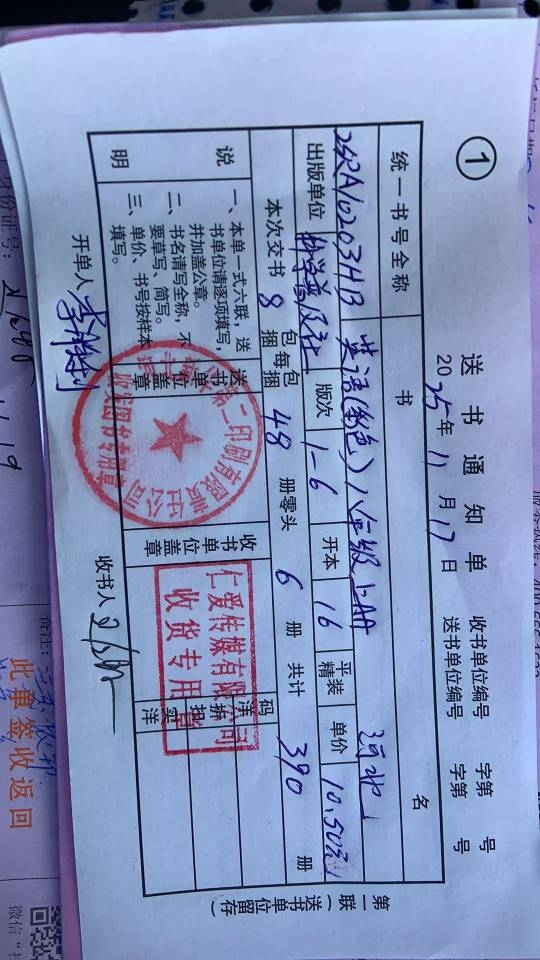 ①
送书通知单
2025年11月17日
收书单位编号 字第 号
送书单位编号 字第 号
统一书号全称
书 名
25QA10203HB
英语(彩色)八年级上册 河北
出版单位 科学普及社 版次 1-6 开本 16 平装 精 单价 10.50元
本次交书 8 包 捆 每包 捆 48 册零头 6 册 共计 390 册
说明
一、本单一式六联，送
书单位请逐项填写，
并加盖公章。
二、书名请写全称，不
要草写、简写。
三、单价、书号按样本
填写。
送书单位盖章
第二印刷有限责任公司
图书专用章
收书单位盖章
仁爱传媒有限公司
收货专用章
码洋
折扣
实洋
开单人 李胜利
收书人
第一联(送书单位留存)
身份证号：
备注：
此单签收返回
微信"扫